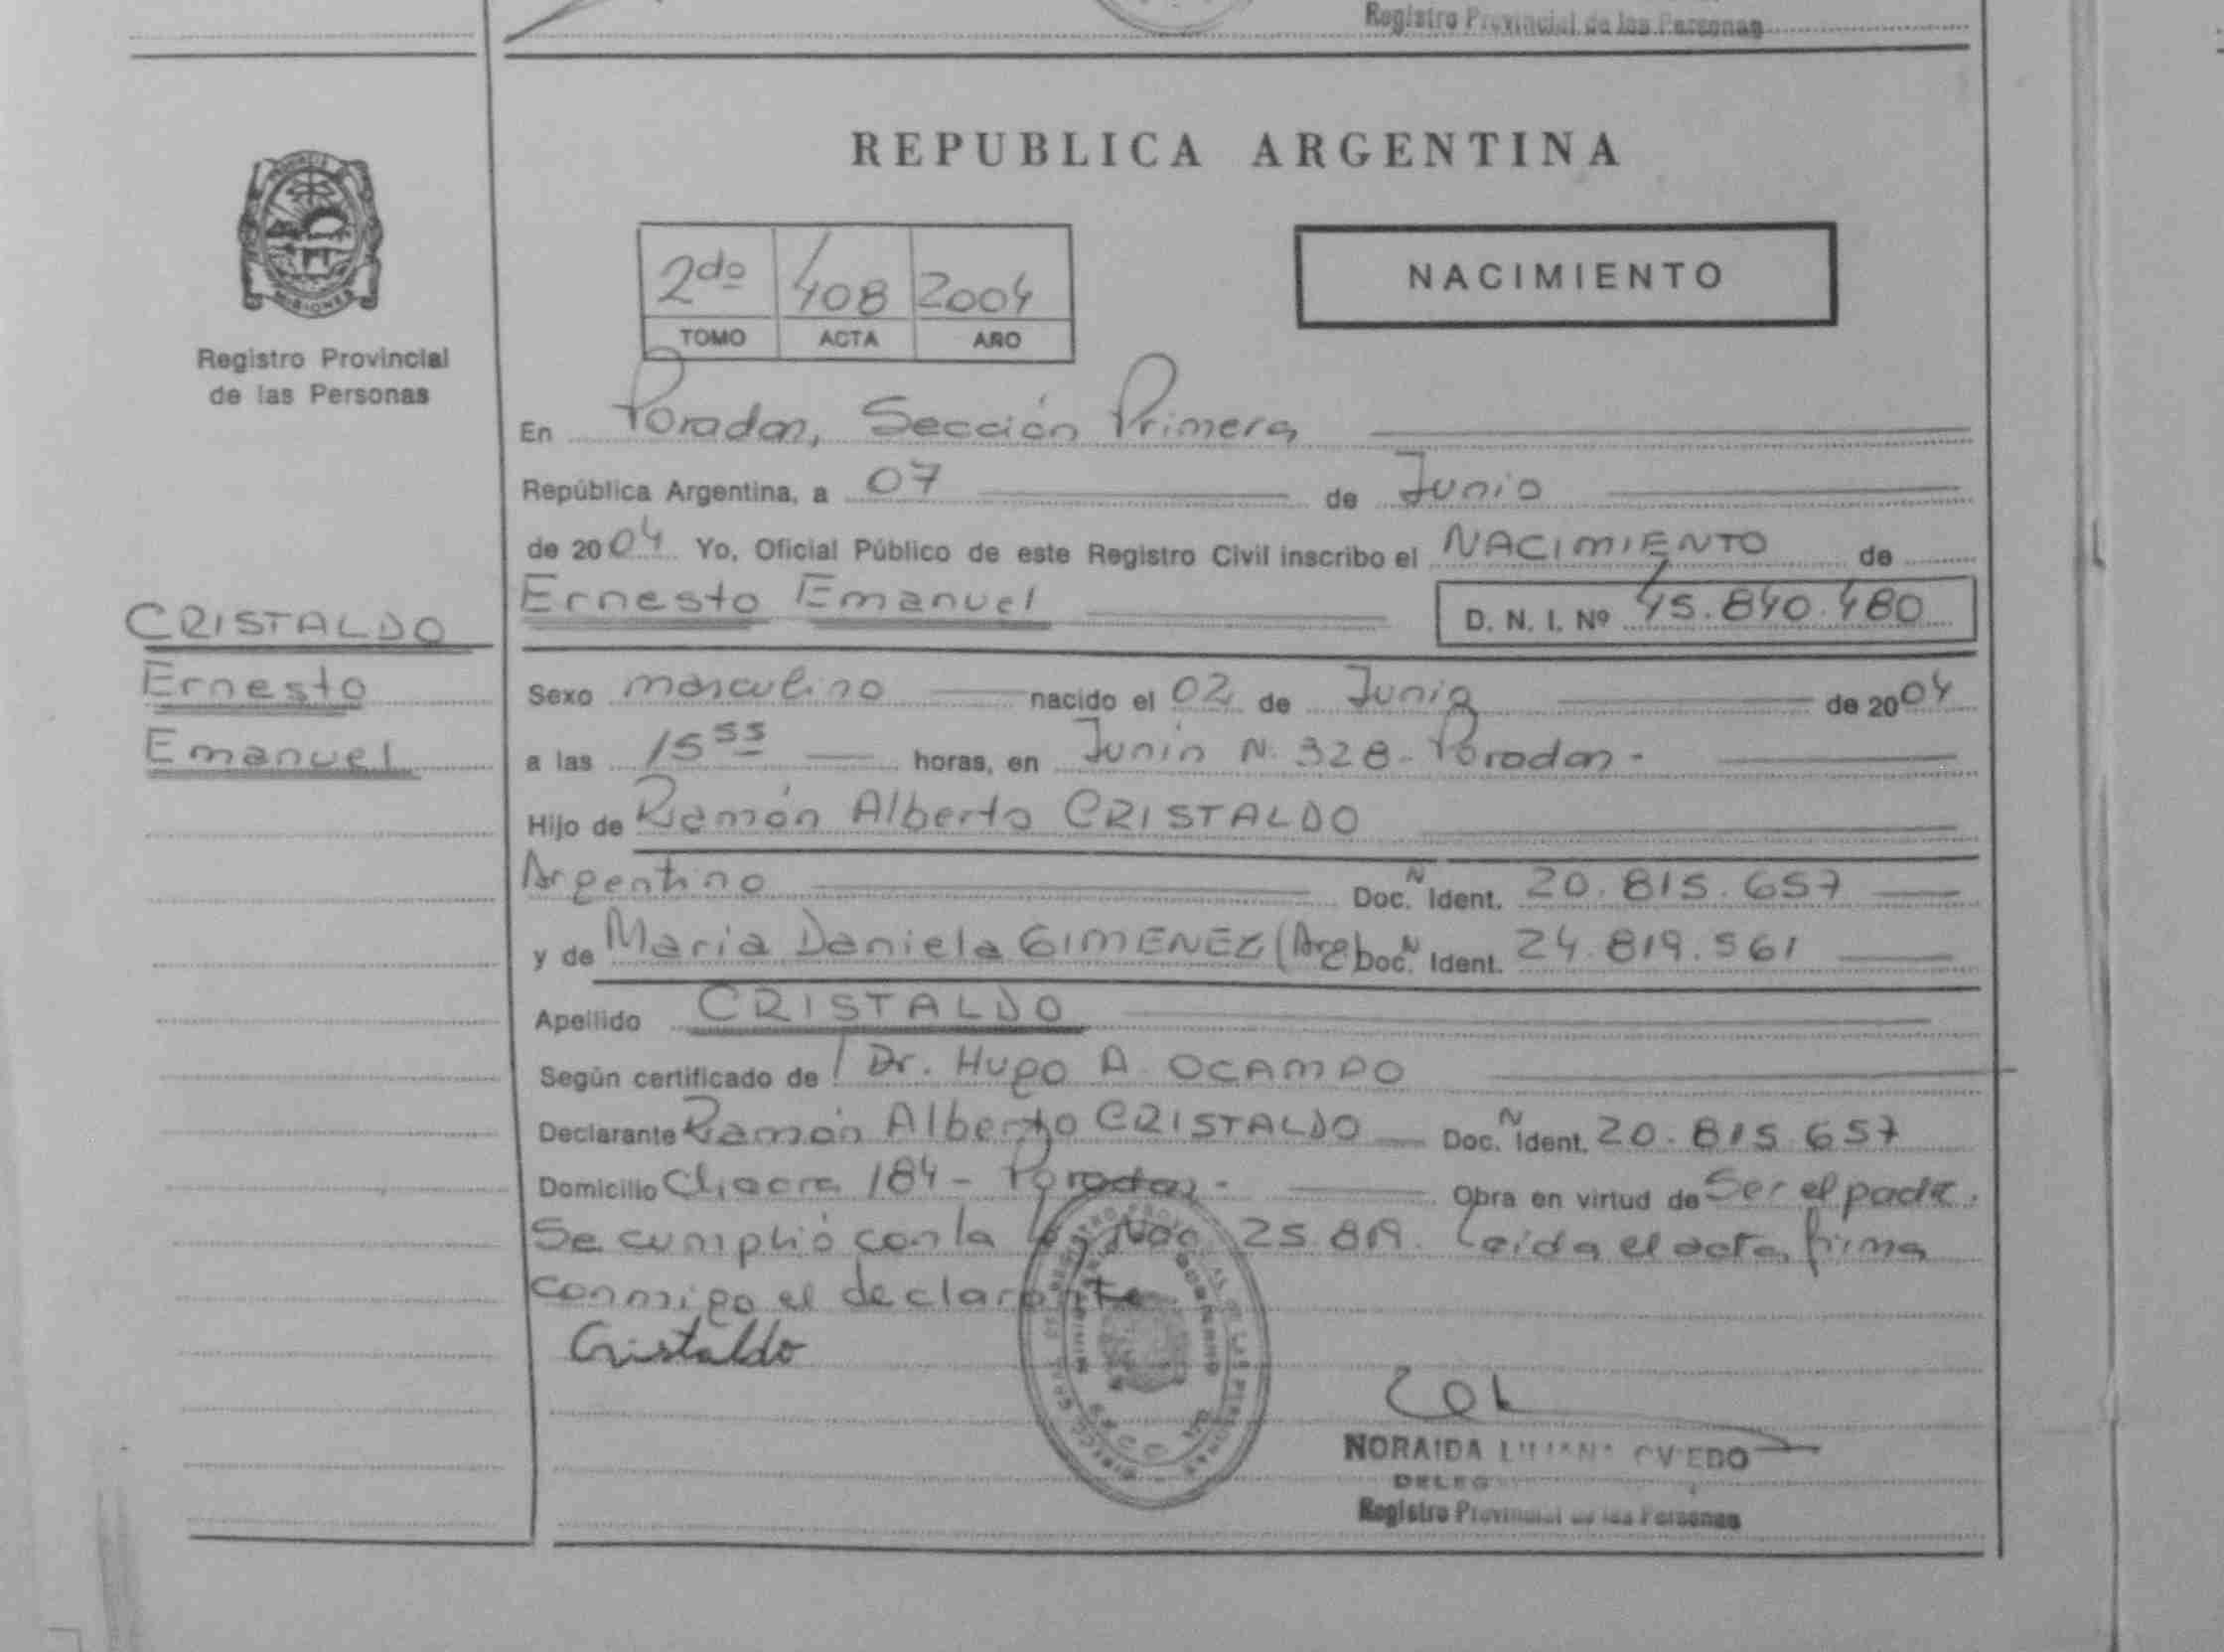 Registro Provincial de las Personas
REPUBLICA ARGENTINA
MISIONES
Registro Provincial
de las Personas
2do 408 2004
TOMO ACTA AÑO
NACIMIENTO
En Posadas, Sección Primera
República Argentina, a 07 de Junio
de 2004 Yo, Oficial Público de este Registro Civil inscribo el NACIMIENTO de
Ernesto Emanuel D. N. I. Nº 45.840.480
CRISTALDO
Ernesto
Emanuel
Sexo masculino nacido el 02 de Junio de 2004
a las 15 55 horas, en Junín N. 328 - Posadas -
Hijo de Ramón Alberto CRISTALDO
Argentino Doc. N Ident. 20.815.657
y de María Daniela GIMENEZ (Arg) Doc. N Ident. 24.819.561
Apellido CRISTALDO
Según certificado de Dr. Hugo A. OCAMPO
Declarante Ramón Alberto CRISTALDO Doc. N Ident. 20.815.657
Domicilio Chacra 184 - Posadas - Obra en virtud de Ser el padre.
Se cumplió con la Ley Nac. 25.819. Leída el acta, firma
conmigo el declarante
Cristaldo
NORAIDA LILIANA OVIEDO
Registro Provincial de las Personas